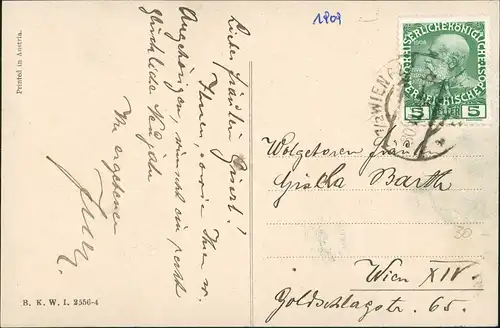 Printed in Austria.
Liebes Fräulein
Ihnen, sowie Ihren w.
Angehörigen, wünscht ein recht
glückliche Neujahr
Ihr ergebener
B. K. W. I. 2556-4
1909
KAISERLICHE KÖNIGLICHE
ÖSTERREICHISCHE
5 HELLER 5
WIEN
Wolgeboren Fräulein
Gisella Barth
30.-
Wien XIV
Goldschlagstr. 65.